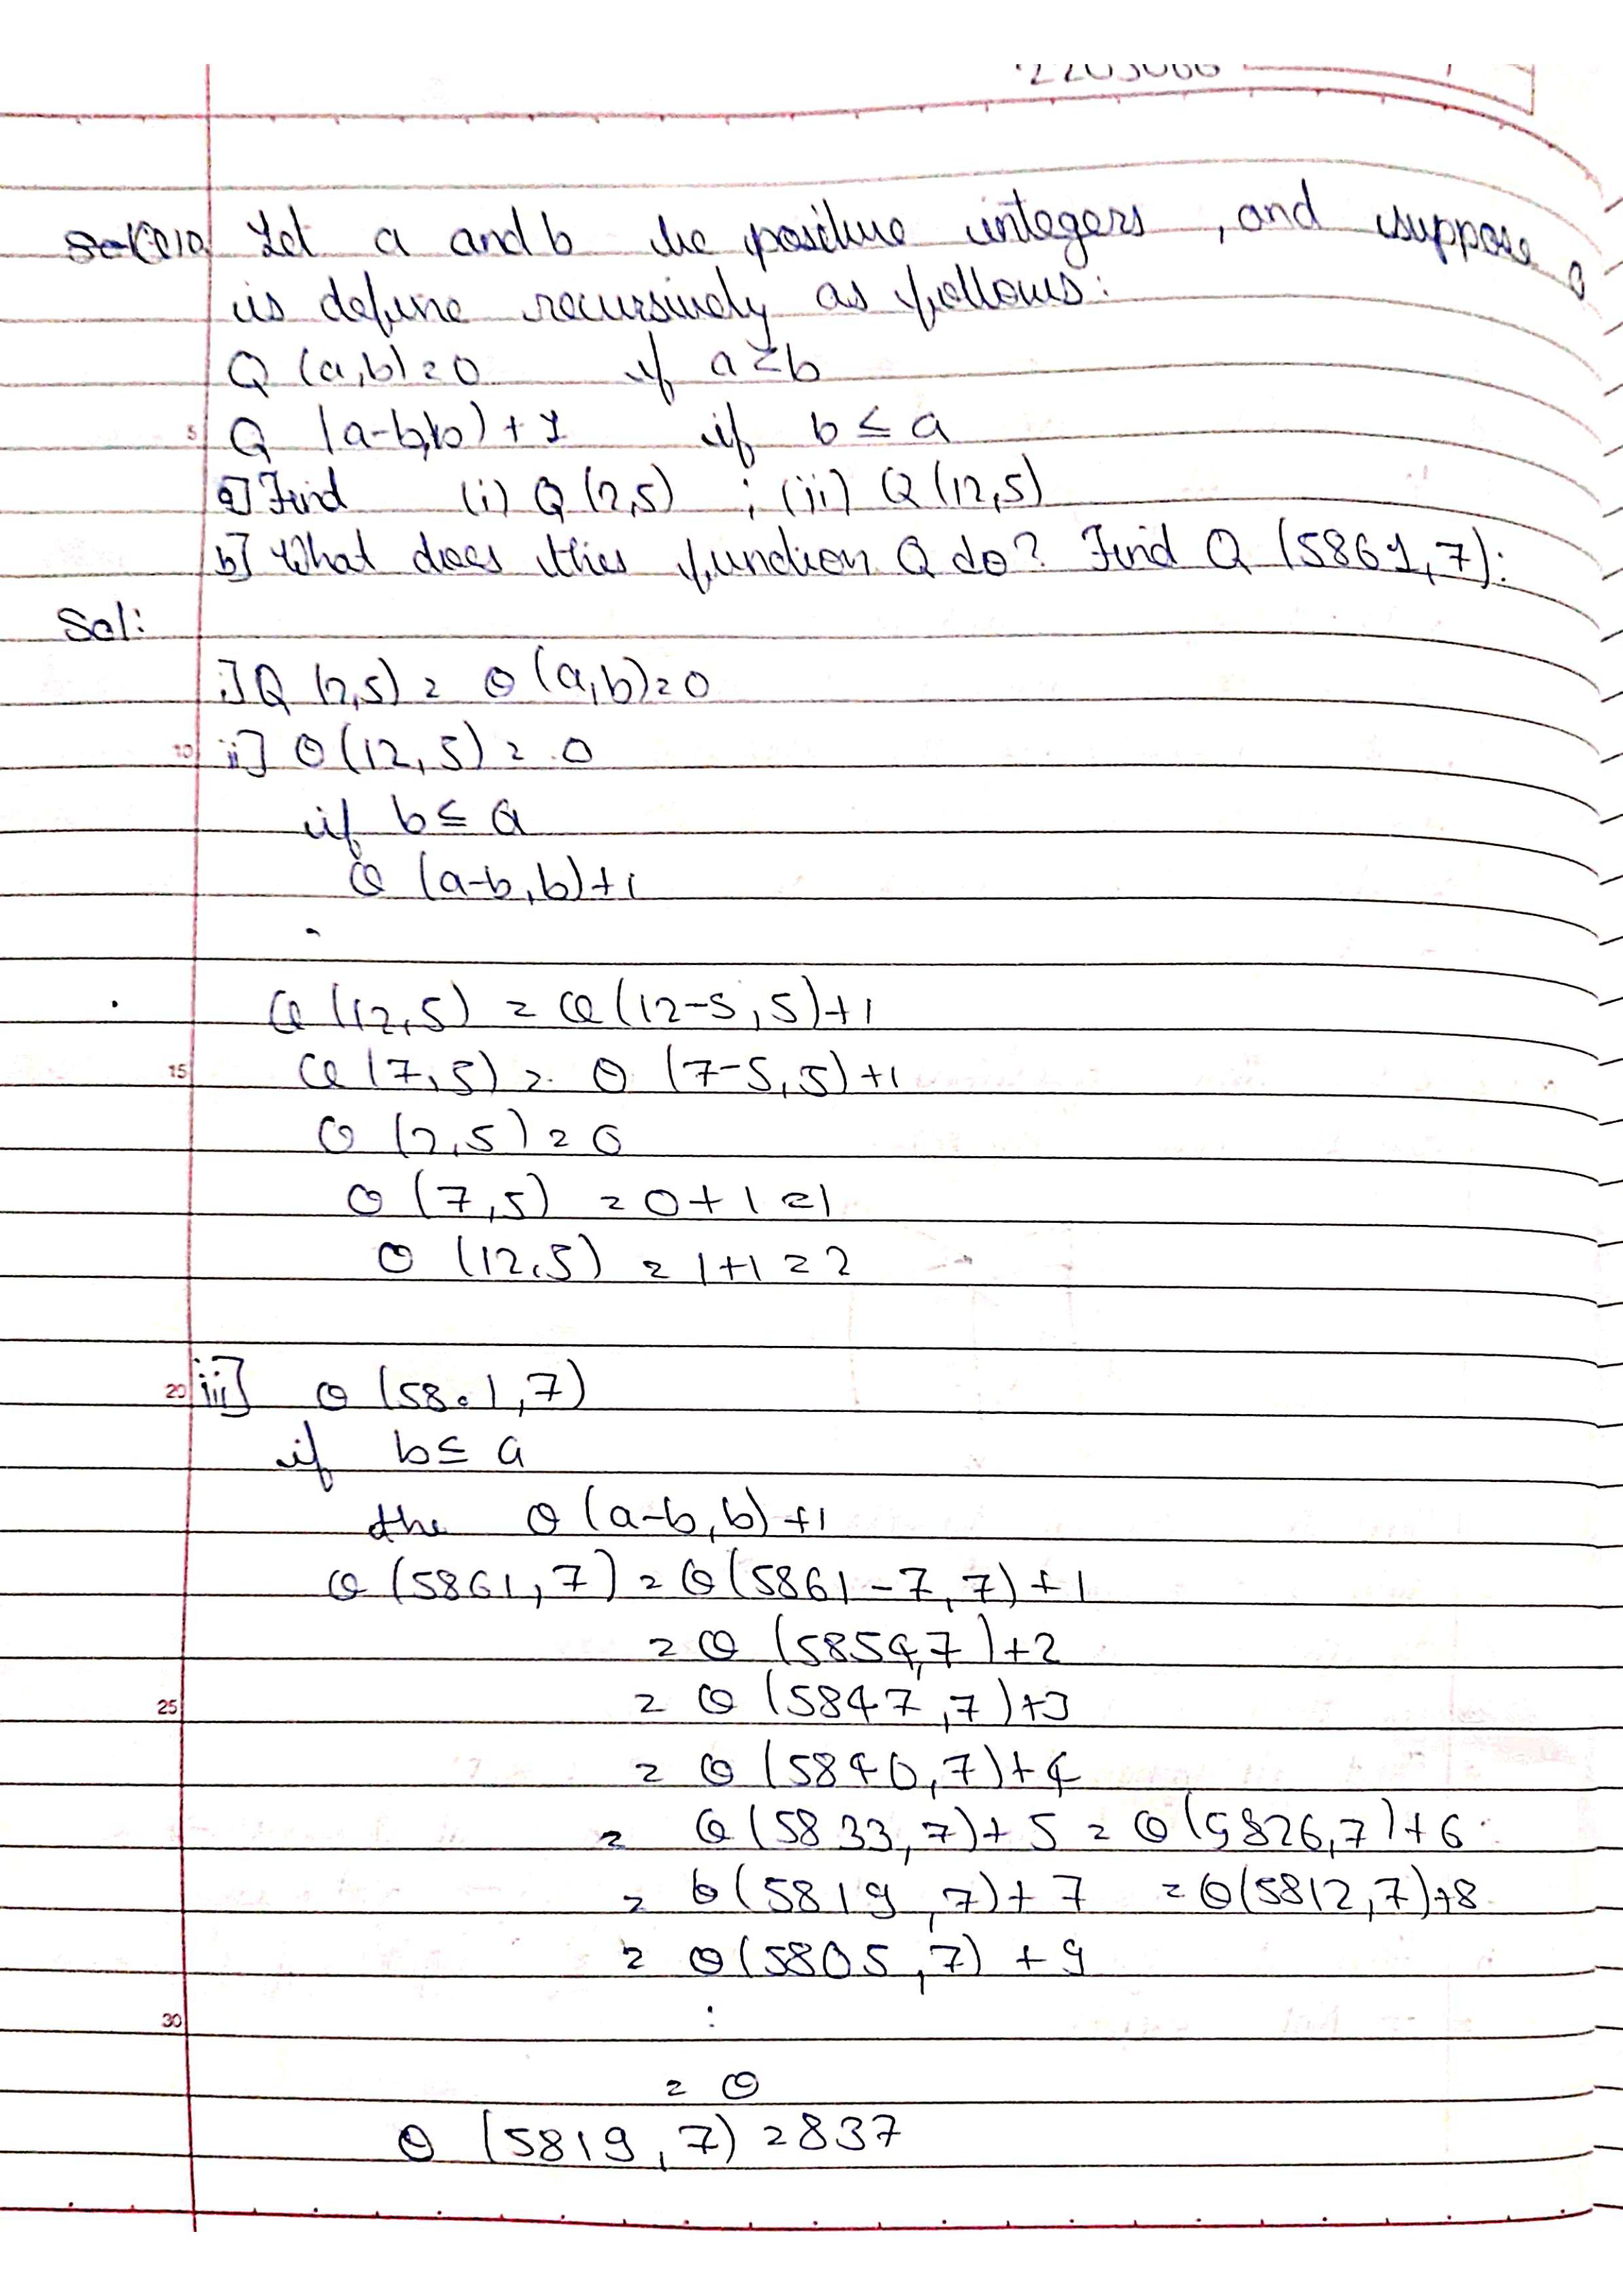 2203066
Let a and b be positive integers, and suppose Q
is define recursively as follows:
Q (a,b) = 0 if a < b
Q (a-b,b) + 1 if b ≤ a
a] Find (i) Q (2,5) ; (ii) Q (12,5)
b] What does this function Q do? Find Q (5861,7):
Sol:
i] Q (2,5) = Q (a,b) = 0
10 ii] Q (12,5) = 0
if b ≤ a
Q (a-b,b)+1
Q (12,5) = Q (12-5,5)+1
15 Q (7,5) = Q (7-5,5)+1
Q (2,5) = 0
Q (7,5) = 0+1 = 1
Q (12,5) = 1+1 = 2
20 iii] Q (58.1,7)
if b ≤ a
the Q (a-b,b)+1
Q (5861,7) = Q (5861-7,7)+1
= Q (5854,7)+2
25 = Q (5847,7)+3
= Q (5840,7)+4
= Q (5833,7)+5 = Q (5826,7)+6
= Q (5819,7)+7 = Q (5812,7)+8
= Q (5805,7)+9
30 :
= Q
Q (5819,7) = 837